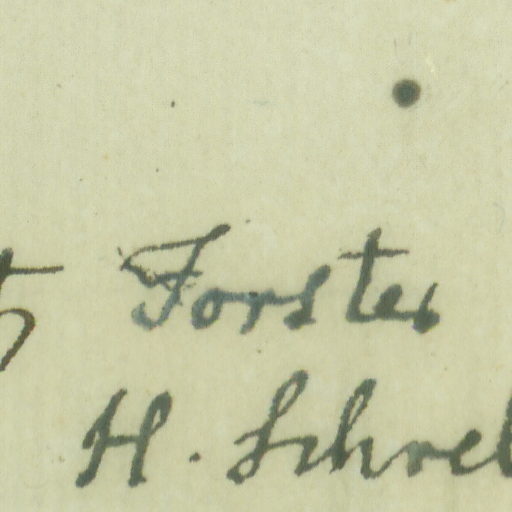 Forster
H. Schrel